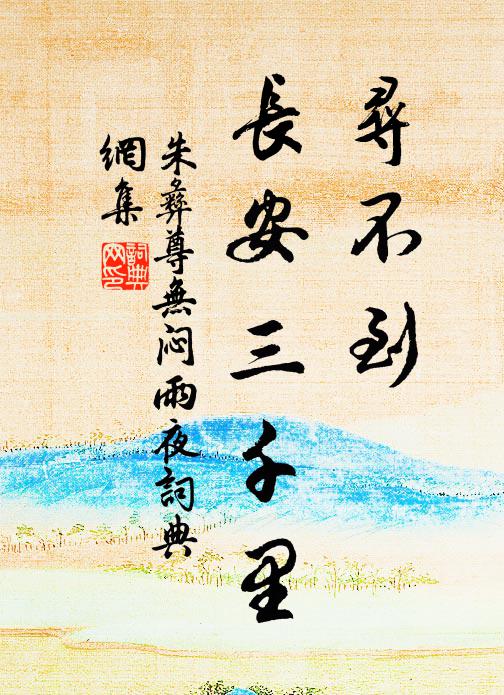 尋不到
長安三千里
朱彝尊無悶雨夜詞典
網集
詞典网印